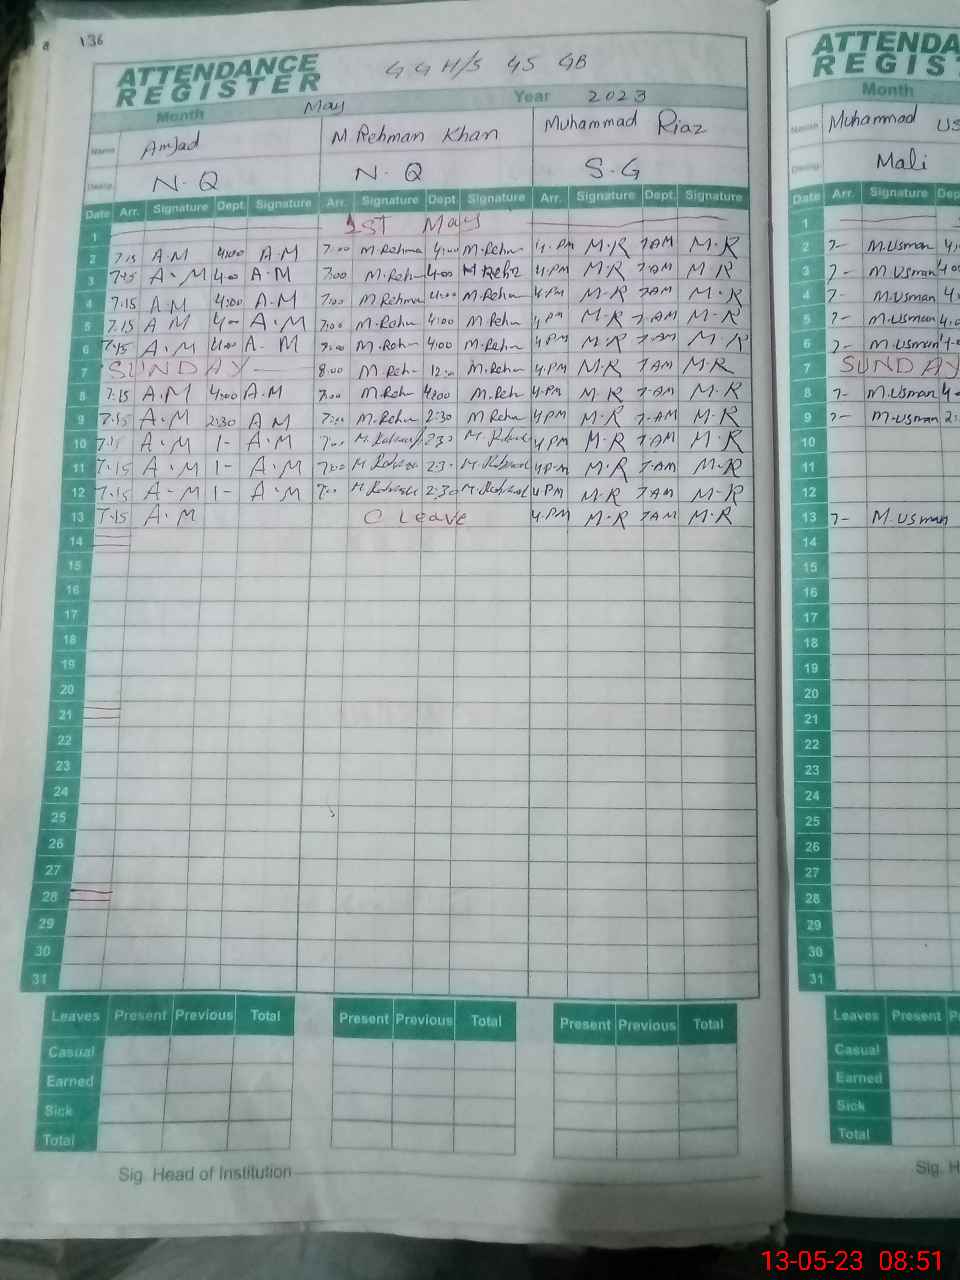 136
ATTENDANCE REGISTER GGH/S 45 GB
Month May Year 2023
Name Amjad M Rehman Khan Muhammad Riaz
Desig. N.Q N.Q S.G
Date Arr. Signature Dept. Signature Arr. Signature Dept Signature Arr. Signature Dept. Signature
1 1ST May
2 7.15 A.M 4:00 A.M 7:00 M.Rehma 4:00 M.Rehm 4.PM M.R 7AM M.R
3 7.15 A.M 4:00 A.M 7:00 M.Rehm 4:00 M Rehm 4.PM M.R 7AM M R
4 7.15 A.M 4:00 A.M 7:00 M Rehma 4:00 M.Rehm 4.PM M.R 7.AM M.R
5 7.15 A M 4- A.M 7:00 M.Rehm 4:00 M.Rehm 4 PM M.R 7.AM M-R
6 7.15 A.M 4:00 A.M M.Rehm 4:00 M.Rehm 4 PM M.R 7.AM M R
7 SUNDAY 8.00 M.Rehm M.Rehm 4.PM M.R 7AM M.R
8 7.15 A.M 4:00 A.M 7:00 M.Rehm 4:00 M.Rehm 4.PM M.R 7-AM M.R
9 7.15 A.M 2:30 A M 7:00 M.Rehm 2:30 M Rehm 4PM M.R 7.AM M.R
10 A.M 1- A.M 2:30 4PM M.R 7AM M.R
11 7.15 A.M 1- A.M 7:00 4P.M M.R 7.AM M.R
12 7.15 A.M 1- A.M 2:30 4.PM M.R 7AM M-R
13 7.15 A.M C Leave 4.PM M.R 7AM M.R
14
15
16
17
18
19
20
21
22
23
24
25
26
27
28
29
30
31
Leaves Present Previous Total Present Previous Total Present Previous Total
Casual
Earned
Sick
Total
Sig. Head of Institution
ATTENDA
REGIST
Month
Name Muhammad US
Desig. Mali
Date Arr. Signature Dep
1
2 7- M.Usman 4.
3 7- M.Usman 4:0
4 7- M.Usman 4.
5 7- M.Usman 4.0
6 7- M.Usman 4-0
7 SUNDAY
8 7- M.Usman 4-
9 7- M-Usman 2:
10
11
12
13 7- M.Usman
14
15
16
17
18
19
20
21
22
23
24
25
26
27
28
29
30
31
Leaves Present P
Casual
Earned
Sick
Total
Sig. H
13-05-23 08:51